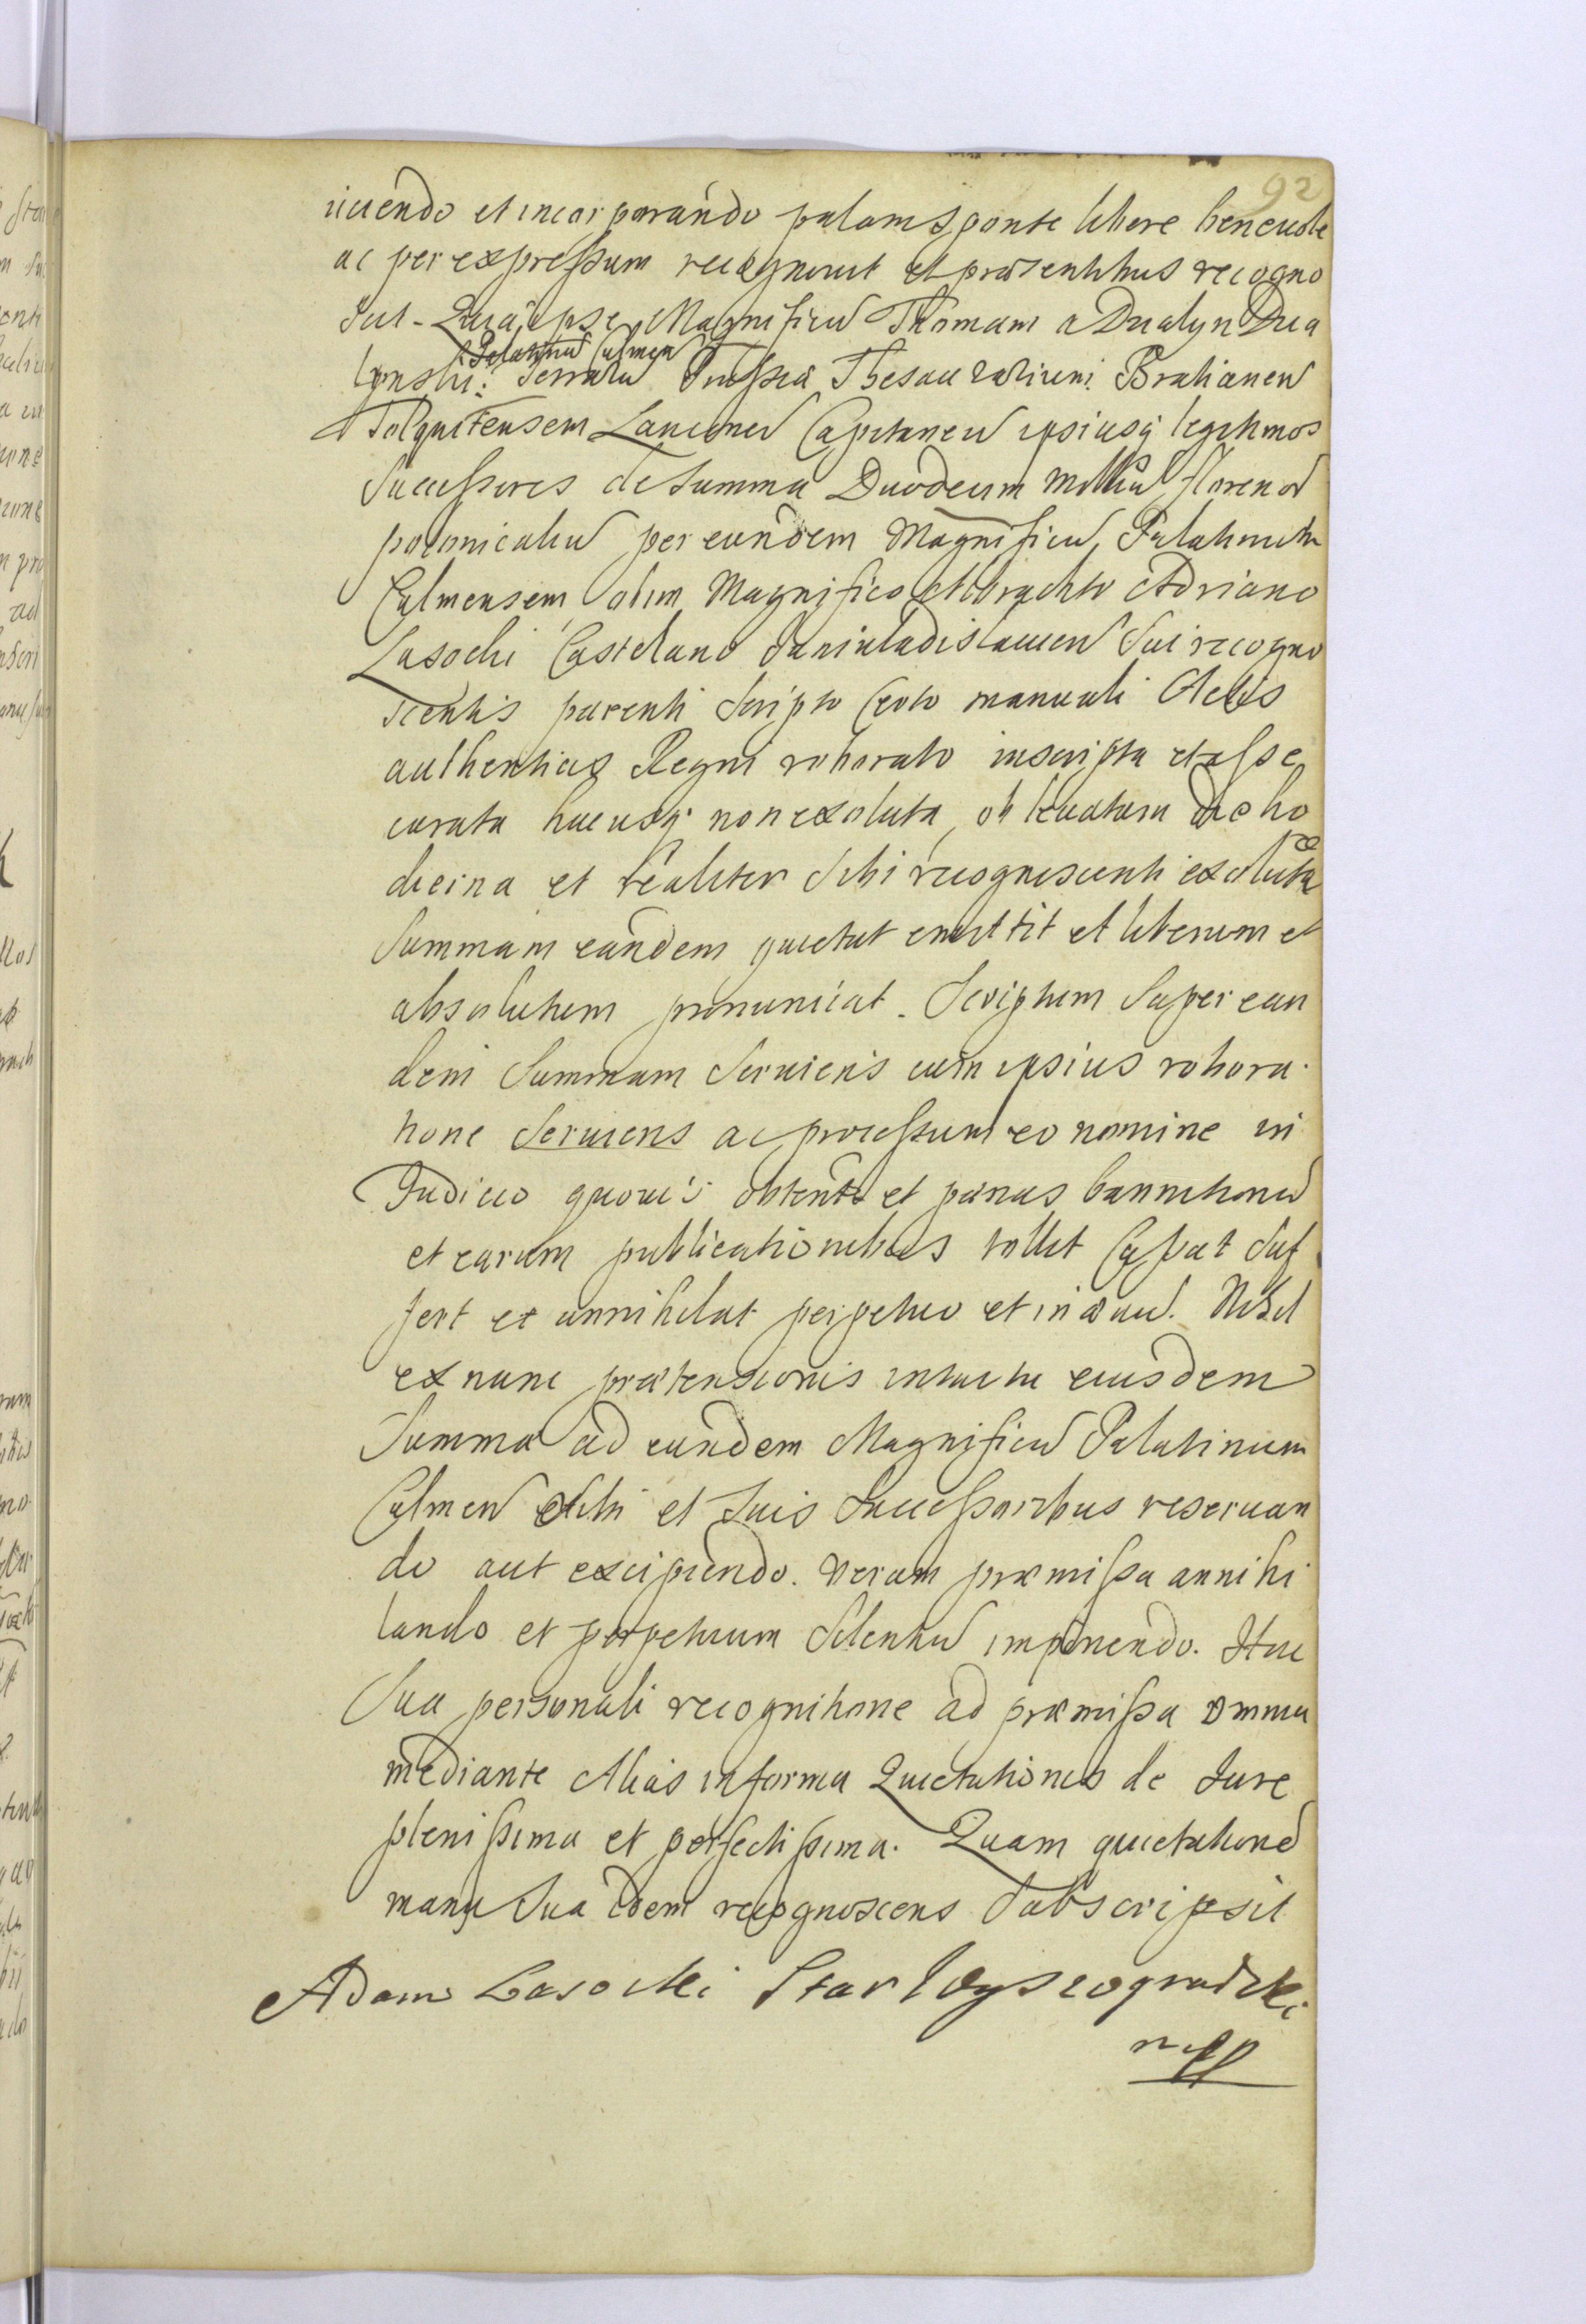 92
uiuendo et incorporando palam sponte libere beneuole
ac per expressum recognouit et præsentibus recogno
scit - Quia ipse Magnificu Thomam a Dzialyn Dzia
Palatinu Culmen
lynski: Terraru Prussiæ Thesaurarium Bratianen
Tolquitensem Capitaneu ipsiusq legitimos
Successores de Summa Duodecim Milliu florenor
polonicaliu per eundem Magnificu Palatinum
Culmensem olim Magnifico Adriano
Lasocki Castellano Juniuladislauien Sui recogno
scentis parenti Scripto Certo manuali Actis
authenticis Regni roborato inscripta et asse
curata hucusq non exoluta, ob leuatam die ho
dierna et realiter Sibi recognoscenti exolutæ
Summam eandem quietat emittit et liberum et
absolutum pronunciat. Scriptum Super ean
dem Summam Seruiens cum ipsius robora.
tione Seruiens ac processum eo nomine in
Judicio quouis obtent et pænas bannitionu
et earum publicationibus tollit Cassat Suf
fert et annihilat perpetuo et in æuu. Nihil
ex nunc prætensionis intuitu eiusdem
Summæ ad eundem Magnificu Palatinum
Culmen Sibi et Suis Successoribus reseruan
do aut excipiendo. Verum præmissa annihi
lando et perpetuum Silentiu imponendo. Hac
Sua personali recognitione ad præmissa omnia
mediante Alias in forma Quietationis de Jure
plenissima et perfectissima. Quam quietatione
manu Sua idem recognoscens Subscripsit
Adam Lasocki Star Wyszogradzki
mpp